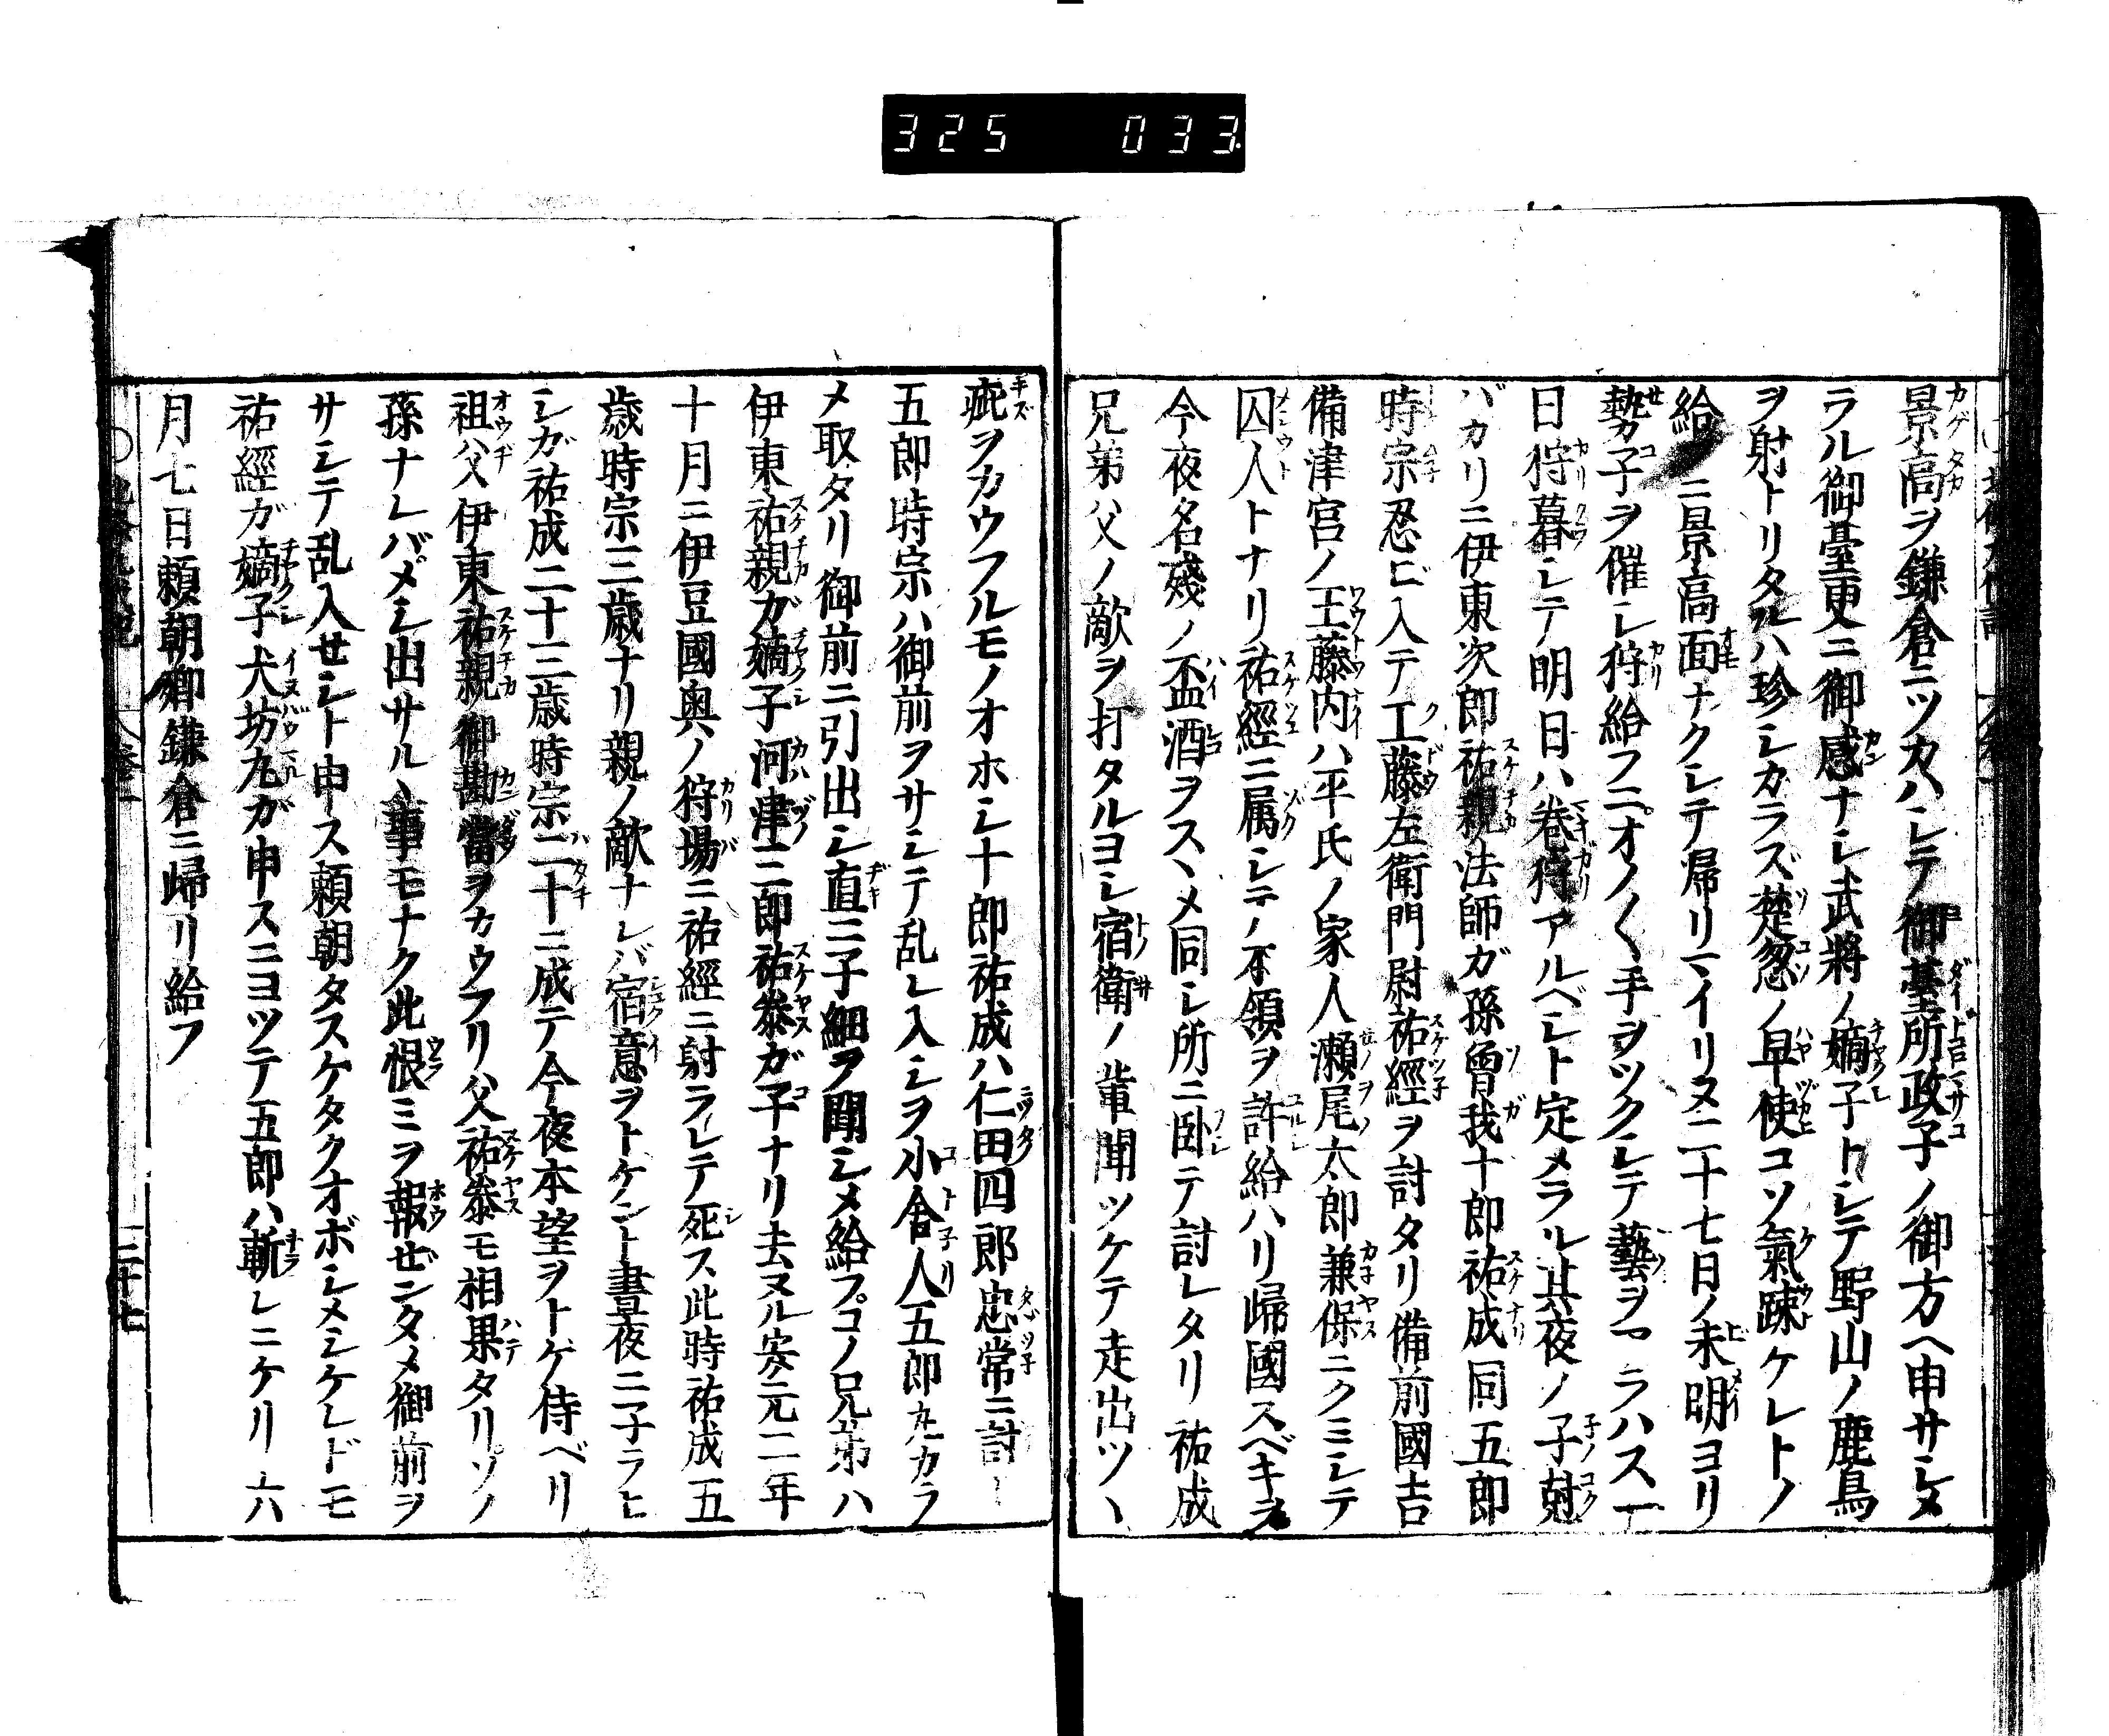 325 033
景高ヲ鎌倉ニツカハシテ御臺所政子ノ御方ヘ申サシメ
ラル御臺更ニ御感ナシ武將ノ嫡子トシテ野山ノ鹿鳥
ヲ射トリタルハ珍シカラズ楚忽ノ早使コソ氣踈ケレトノ
給 ニ景高面ナクシテ帰リマイリヌ二十七日ノ未明ヨリ
勢子ヲ催シ狩給フニオノ〱手ヲツクシテ藝ヲアラハス一
日狩暮シテ明日ハ巻狩アルベシト定メラル其夜ノ子剋
バカリニ伊東次郎祐親法師ガ孫曽我十郎祐成同五郎
時宗忍ビ入テ工藤左衛門尉祐經ヲ討タリ備前國吉
備津宮ノ王藤内ハ平氏ノ家人瀬尾太郎兼保ニクミシテ
囚人トナリ祐經ニ属シテ本領ヲ許給ハリ歸國スベキヲ
今夜名殘ノ盃酒ヲスヽメ同シ所ニ臥テ討レタリ祐成
兄弟父ノ敵ヲ打タルヨシ宿衛ノ輩聞ツケテ走出ツヽ
疵ヲカウフルモノオホシ十郎祐成ハ仁田四郎忠常ニ討
五郎時宗ハ御前ヲサシテ乱レ入シヲ小舎人五郎丸カラ
メ取タリ御前ニ引出シ直ニ子細ヲ聞シメ給フコノ兄弟ハ
伊東祐親ガ嫡子河津三郎祐泰ガ子ナリ去ヌル安元二年
十月ニ伊豆國奥ノ狩場ニ祐經ニ射ラレテ死ス此時祐成五
歳時宗三歳ナリ親ノ敵ナレバ宿意ヲトケント晝夜ニ子ラヒ
シガ祐成二十三歳時宗二十ニ成テ今夜本望ヲトゲ侍ベリ
祖父伊東祐親御勘當ヲカウフリ父祐泰モ相果タリソノ
孫ナレバメシ出サルヽ事モナク此恨ミヲ報ゼンタメ御前ヲ
サシテ乱入せシト申ス頼朝タスケタクオボシメシケレドモ
祐經ガ嫡子犬坊丸ガ申スニヨツテ五郎ハ斬レニケリ六
月七日頼朝卿鎌倉ニ歸リ給フ
二十七